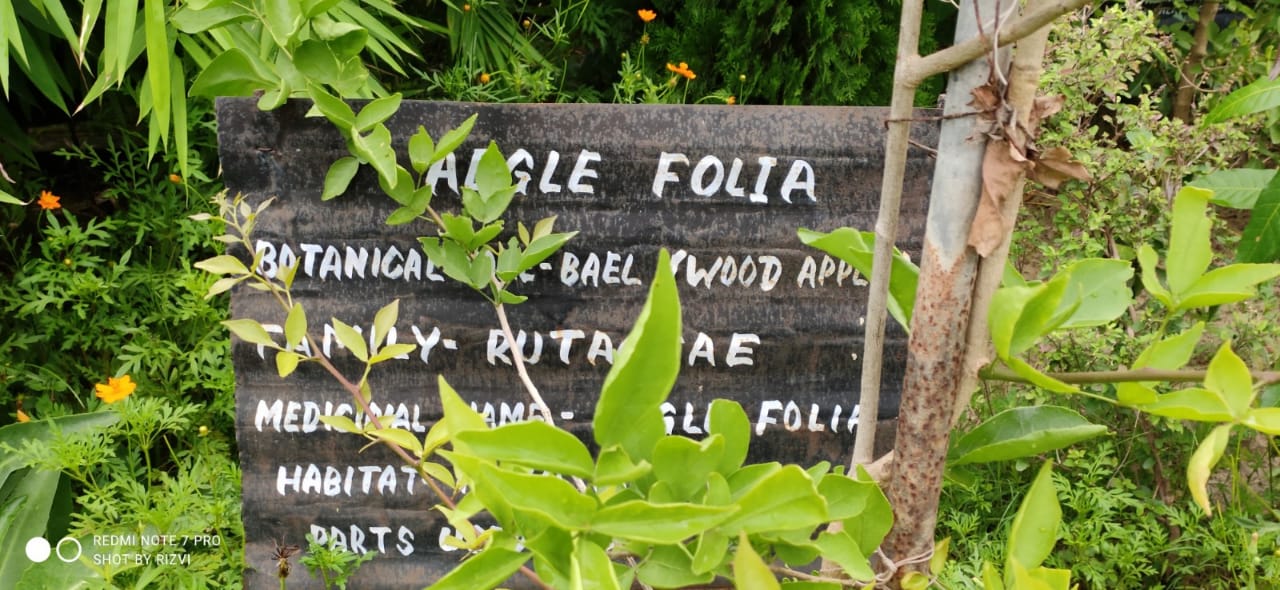 AEGLE FOLIA
BOTANICAL -BAEL (WOOD APPL
FAMILY- RUTACEAE
MEDICINAL NAME- AEGLE FOLIA
HABITAT
PARTS
REDMI NOTE 7 PRO
SHOT BY RIZVI